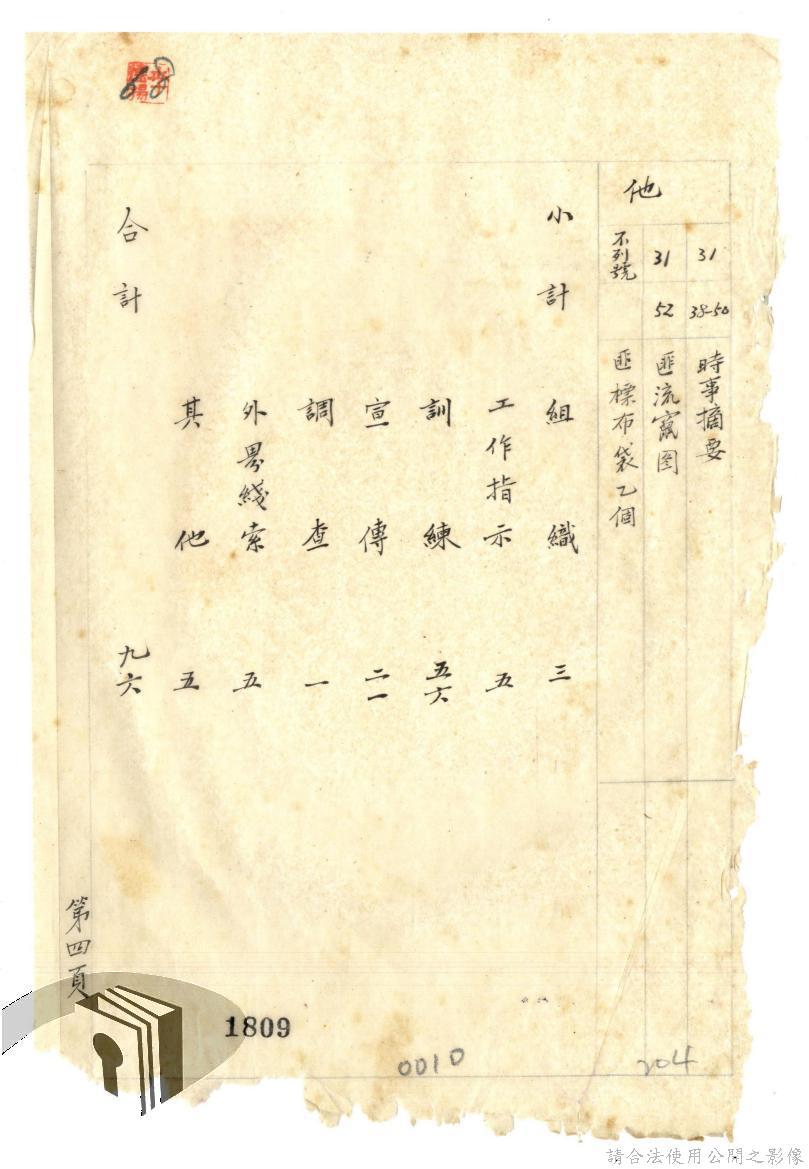 68
他
31 38-50 時事摘要
31 52 匪流竄圖
不列號 匪標布袋乙個
小計 組織 三
工作指示 五
訓練 五六
宣傳 二一
調查 一
外界綫索 五
其他 五
合計 九六
第四頁
1809
0010
204
請合法使用公開之影像